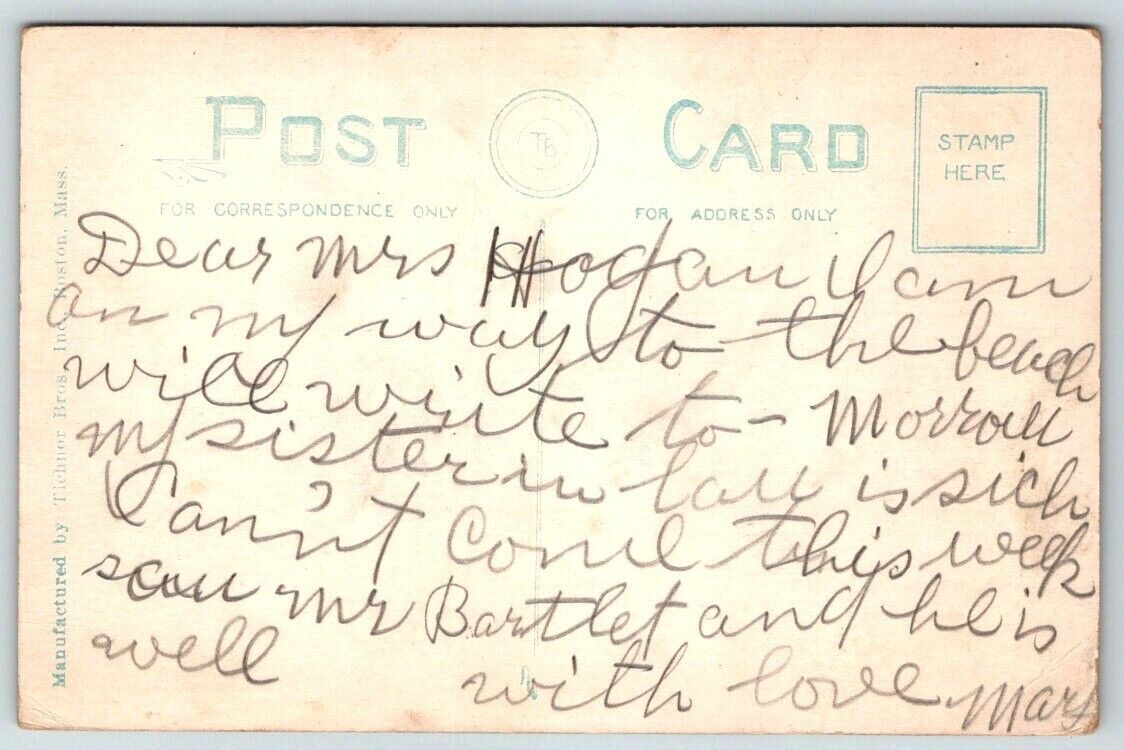 POST CARD
TB
STAMP
HERE
FOR CORRESPONDENCE ONLY
FOR ADDRESS ONLY
Manufactured by Tichnor Bros. Inc., Boston, Mass.
Dear Mrs Hogan I am
on my way to the beach
will write to-Morrow
my sister in law is sick
Can't Come this week
saw Mr Bartlet and he is
well
with love Mary